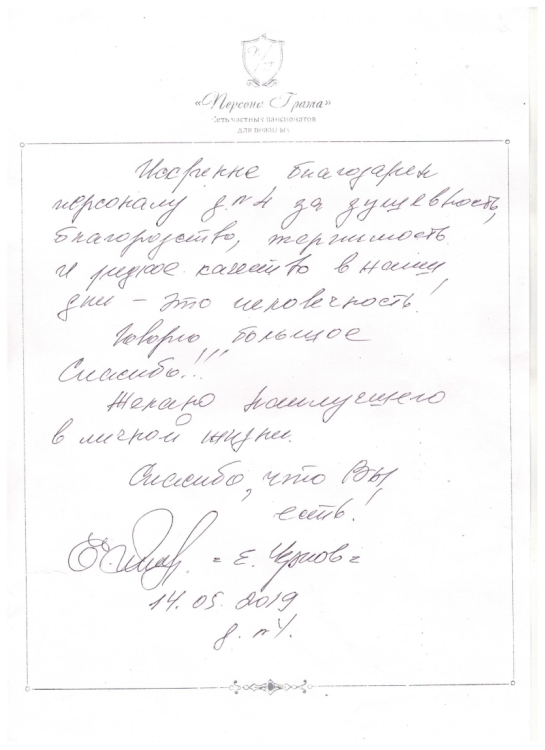 «Персона Грата»
Сеть частных пансионатов
для пожилых
Искренне благодарен
персоналу д. №4 за душевность,
благородство, терпимость
и редкое качество в наши
дни – это человечность!
Говорю большое
Спасибо!!!
Желаю наилучшего
в личной жизни.
Спасибо, что Вы
есть!
= Е. Чернов =
14.05.2019
д. №4.